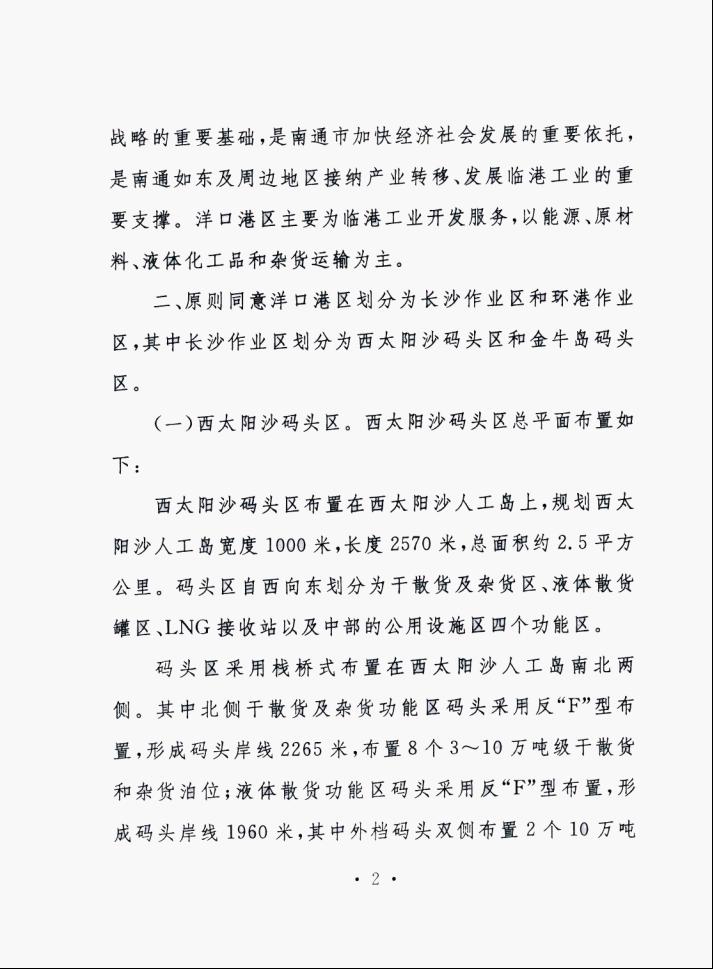 战略的重要基础,是南通市加快经济社会发展的重要依托,
是南通如东及周边地区接纳产业转移、发展临港工业的重
要支撑。洋口港区主要为临港工业开发服务,以能源、原材
料、液体化工品和杂货运输为主。
二、原则同意洋口港区划分为长沙作业区和环港作业
区,其中长沙作业区划分为西太阳沙码头区和金牛岛码头
区。
(一)西太阳沙码头区。西太阳沙码头区总平面布置如
下:
西太阳沙码头区布置在西太阳沙人工岛上,规划西太
阳沙人工岛宽度 1000 米,长度 2570 米,总面积约 2.5 平方
公里。码头区自西向东划分为干散货及杂货区、液体散货
罐区、LNG 接收站以及中部的公用设施区四个功能区。
码头区采用栈桥式布置在西太阳沙人工岛南北两
侧。其中北侧干散货及杂货功能区码头采用反“F”型布
置,形成码头岸线 2265 米,布置 8 个 3～10 万吨级干散货
和杂货泊位;液体散货功能区码头采用反“F”型布置,形
成码头岸线 1960 米,其中外档码头双侧布置 2 个 10 万吨
· 2 ·